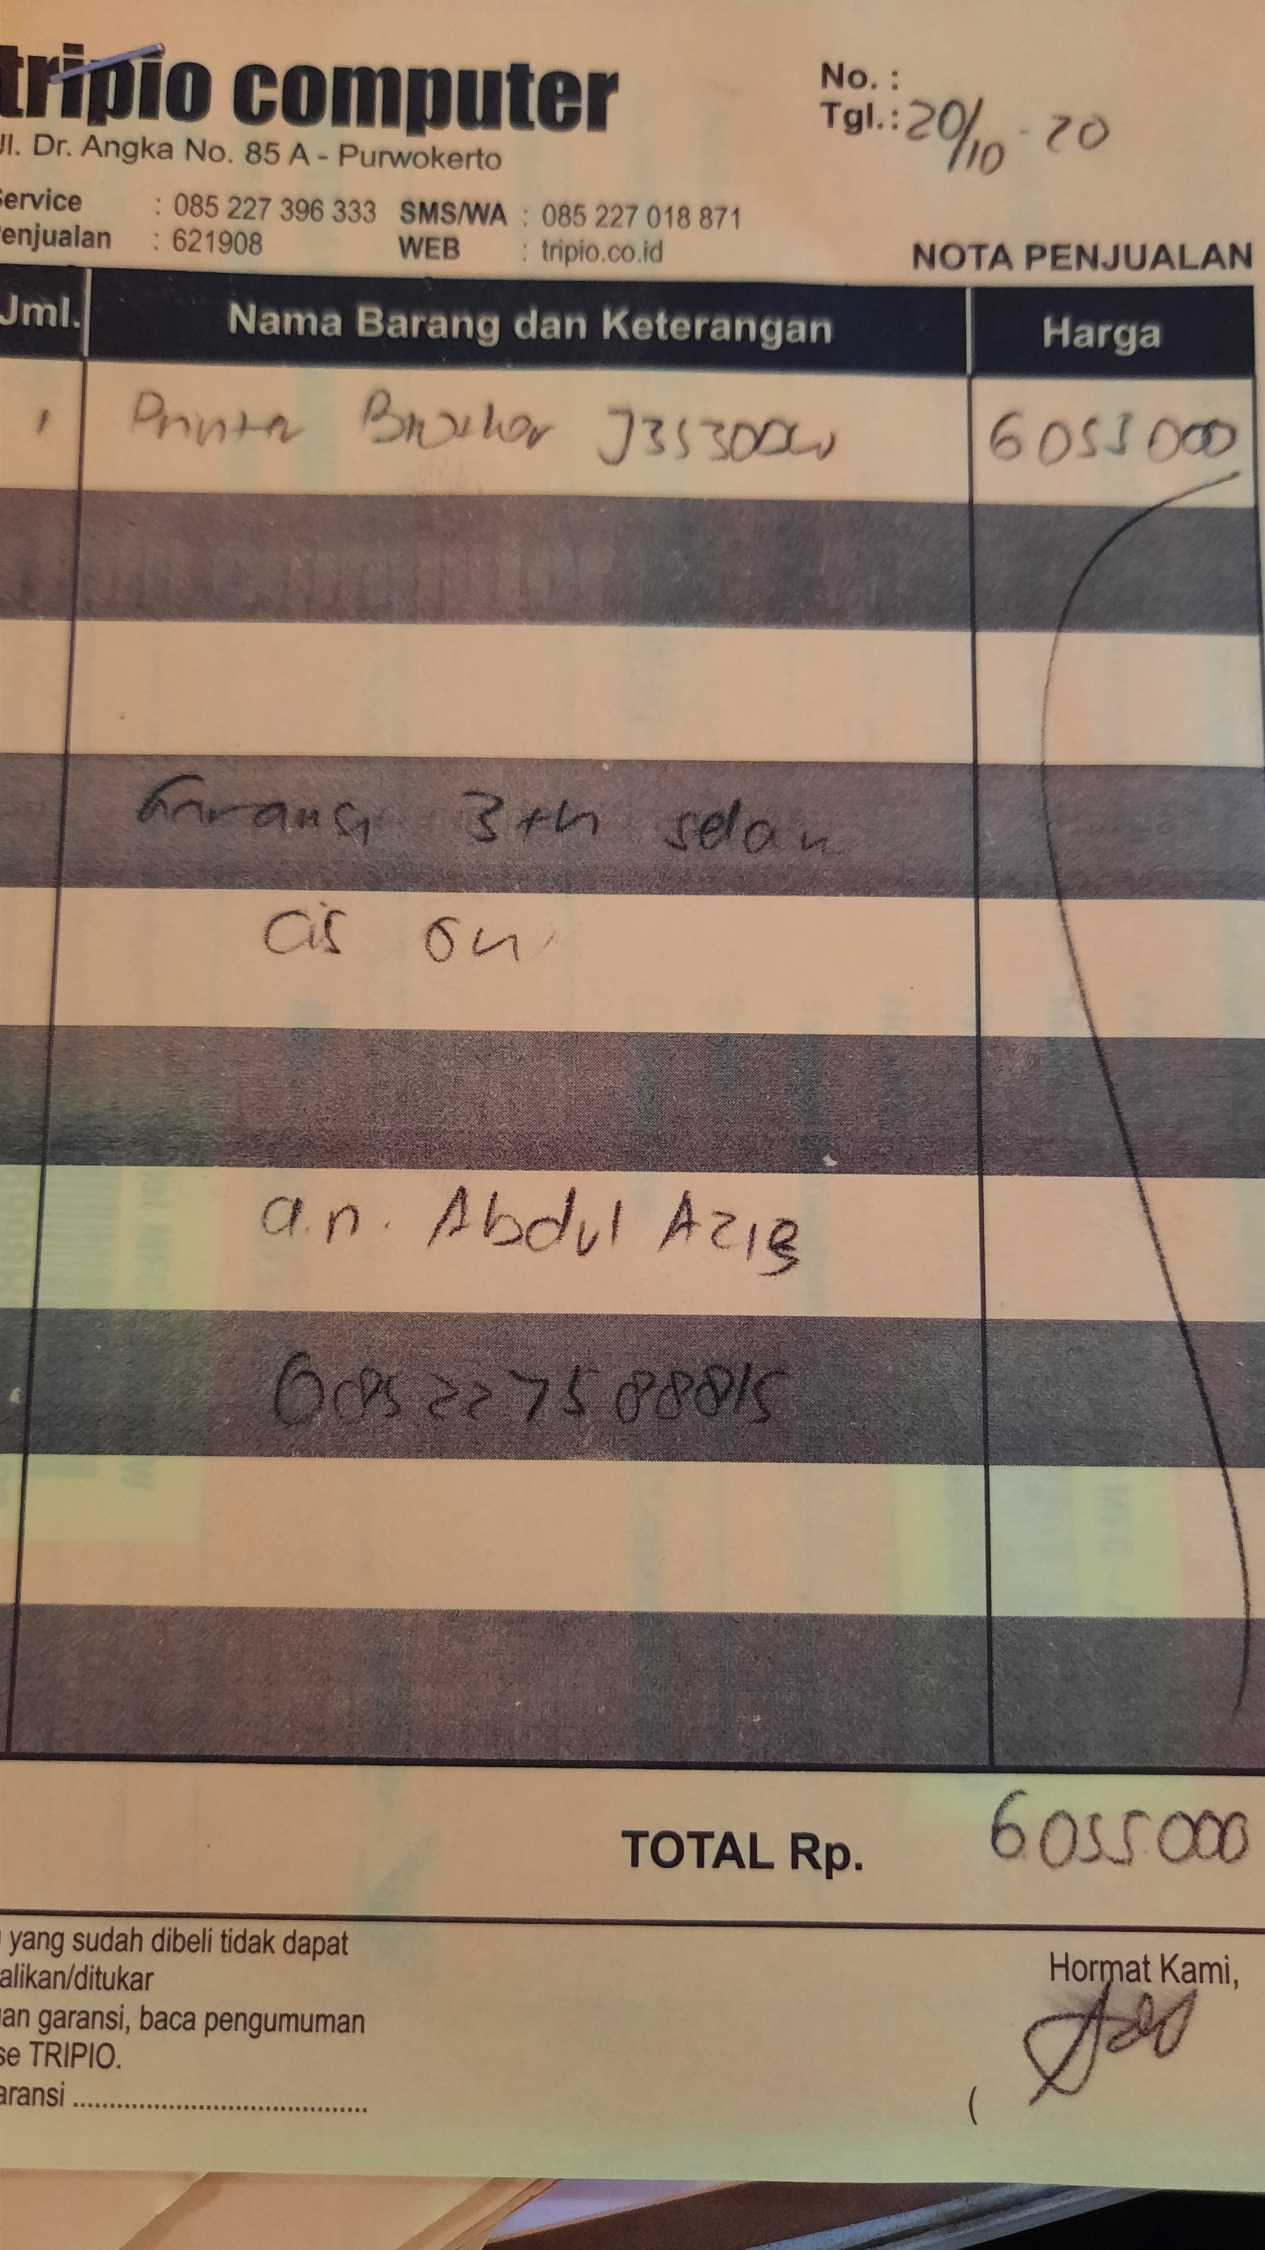 tripio computer
Jl. Dr. Angka No. 85 A - Purwokerto
No. :
Tgl.: 20/10 - 20
Service : 085 227 396 333 SMS/WA : 085 227 018 871
Penjualan : 621908 WEB : tripio.co.id
NOTA PENJUALAN
Jml. Nama Barang dan Keterangan Harga
1 Printer Brother J3530DW 6055000
Garansi 3 th selain
a.n. Abdul Azis
085227588815
TOTAL Rp. 6055.000
yang sudah dibeli tidak dapat
alikan/ditukar
an garansi, baca pengumuman
se TRIPIO.
aransi ........................................
Hormat Kami,
(